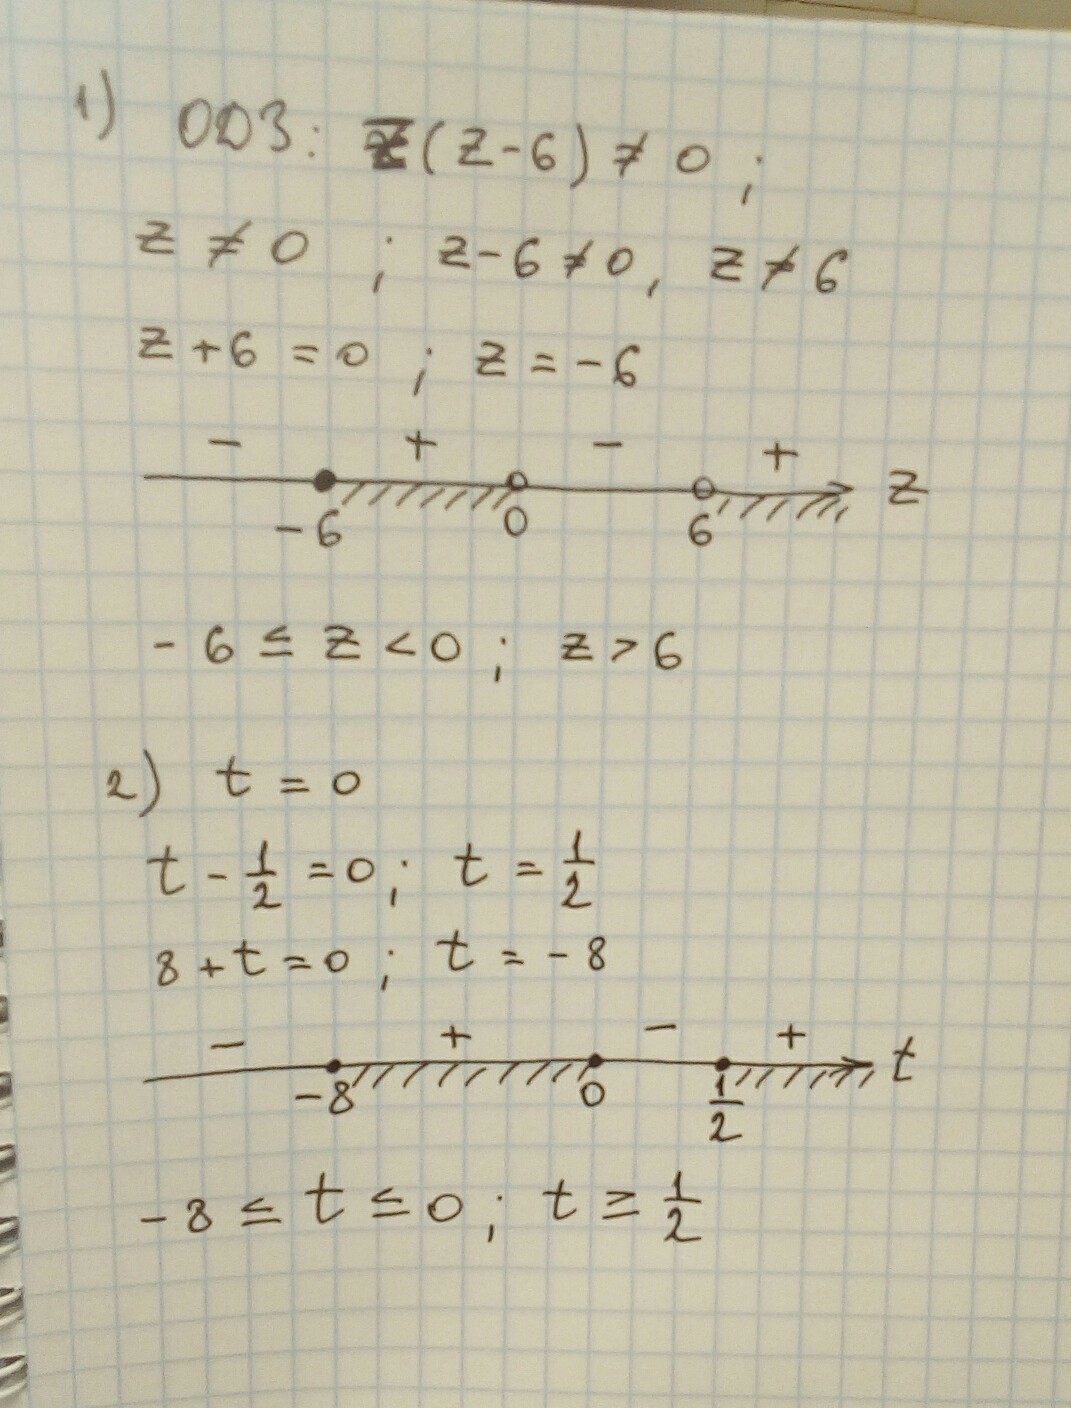 1) ОДЗ: z(z-6) ≠ 0 ;
z ≠ 0 ; z-6 ≠ 0, z ≠ 6
z + 6 = 0 ; z = -6
- + - +
-6 0 6 z
-6 ≤ z < 0 ; z > 6
2) t = 0
t - 1/2 = 0 ; t = 1/2
8 + t = 0 ; t = -8
- + - +
-8 0 1/2 t
-8 ≤ t ≤ 0 ; t ≥ 1/2